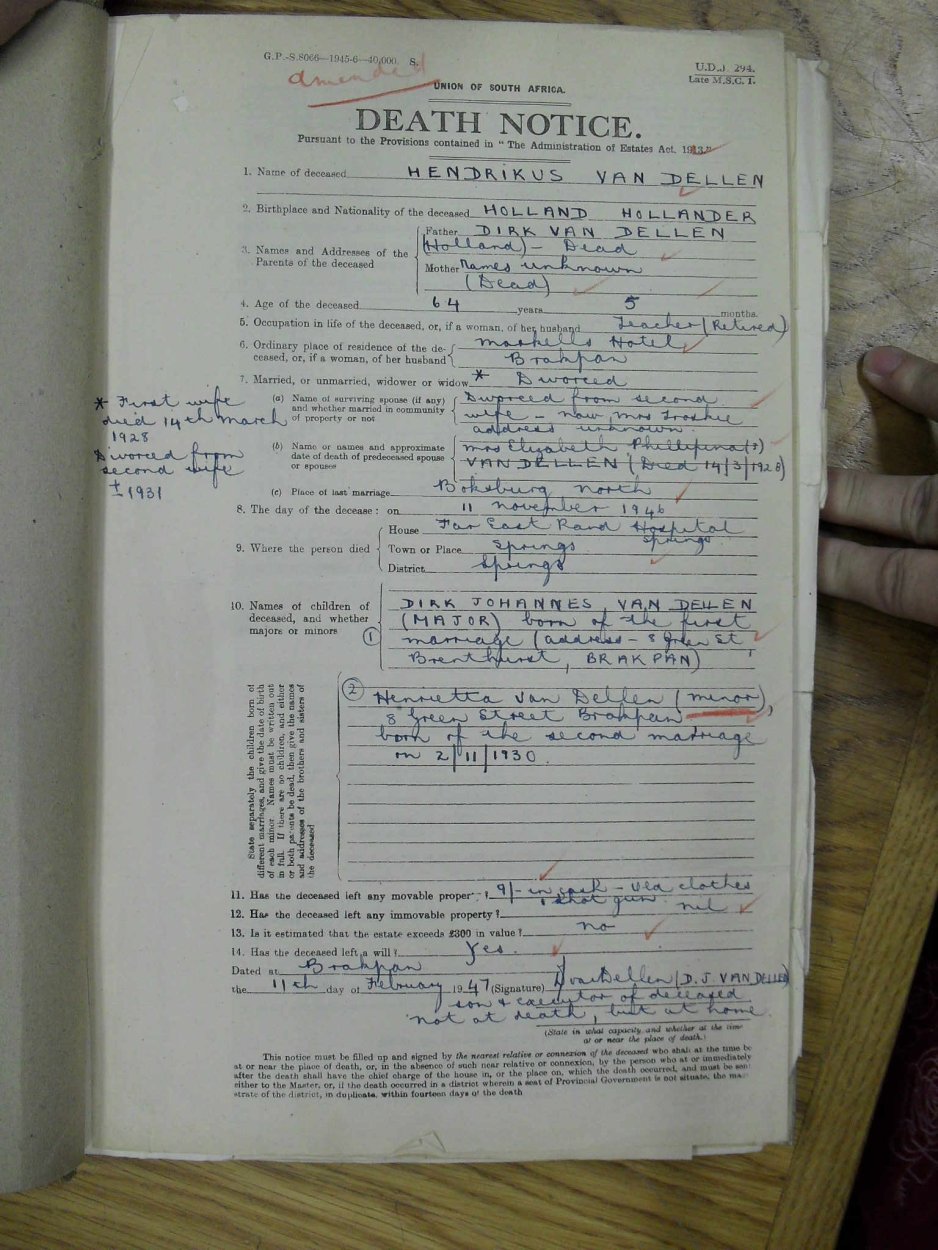 G.P.-S.8066—1945-6—40,000. S.
U.D.J. 294.
Late M.S.C. 1.
amended
UNION OF SOUTH AFRICA.
DEATH NOTICE.
Pursuant to the Provisions contained in "The Administration of Estates Act, 1913."
1. Name of deceased HENDRIKUS VAN DELLEN
2. Birthplace and Nationality of the deceased HOLLAND HOLLANDER
3. Names and Addresses of the Parents of the deceased
Father DIRK VAN DELLEN
(Holland) - Dead
Mother Names unknown
(Dead)
4. Age of the deceased 64 years 5 months.
5. Occupation in life of the deceased, or, if a woman, of her husband Teacher (Retired)
6. Ordinary place of residence of the deceased, or, if a woman, of her husband
Hotel
Brakpan
7. Married, or unmarried, widower or widow * Divorced
(a) Name of surviving spouse (if any) and whether married in community of property or not
Divorced from second
wife - now Mrs
address unknown.
* First wife
died 14th March
1928
Divorced from
second wife
± 1931
(b) Name or names and approximate date of death of predeceased spouse or spouses
Mrs Elizabeth (?)
VAN DELLEN (Died 14/3/1928)
(c) Place of last marriage Boksburg North
8. The day of the decease: on 11 November 1946
9. Where the person died
House Far East Rand Hospital
Springs
Town or Place Springs
District Springs
10. Names of children of deceased, and whether majors or minors
(1) DIRK JOHANNES VAN DELLEN
(MAJOR) born of the first
marriage (address - 8 Green St,
Brenthurst, BRAKPAN)
State separately the children born of different marriages, and give the date of birth of each minor. Names must be written out in full. If there are no children, and either or both parents be dead, then give the names and addresses of the brothers and sisters of the deceased
(2) Henrietta van Dellen (minor),
8 Green Street Brakpan
born of the second marriage
on 2/11/1930.
11. Has the deceased left any movable property? 9/- in cash - old clothes
1 shot gun.
12. Has the deceased left any immovable property? nil
13. Is it estimated that the estate exceeds £300 in value? no
14. Has the deceased left a will? Yes.
Dated at Brakpan
the 11th day of February 1947 (Signature) DvanDellen (D.J. VAN DELLEN)
son & executor of deceased
not at death, but at home.
(State in what capacity, and whether at the time
at or near the place of death.)
This notice must be filled up and signed by the nearest relative or connexion of the deceased who shall at the time be
at or near the place of death, or, in the absence of such near relative or connexion, by the person who at or immediately
after the death shall have the chief charge of the house in, or the place on, which the death occurred, and must be sent
either to the Master, or, if the death occurred in a district wherein a seat of Provincial Government is not situate, the ma-
strate of the district, in duplicate, within fourteen days of the death